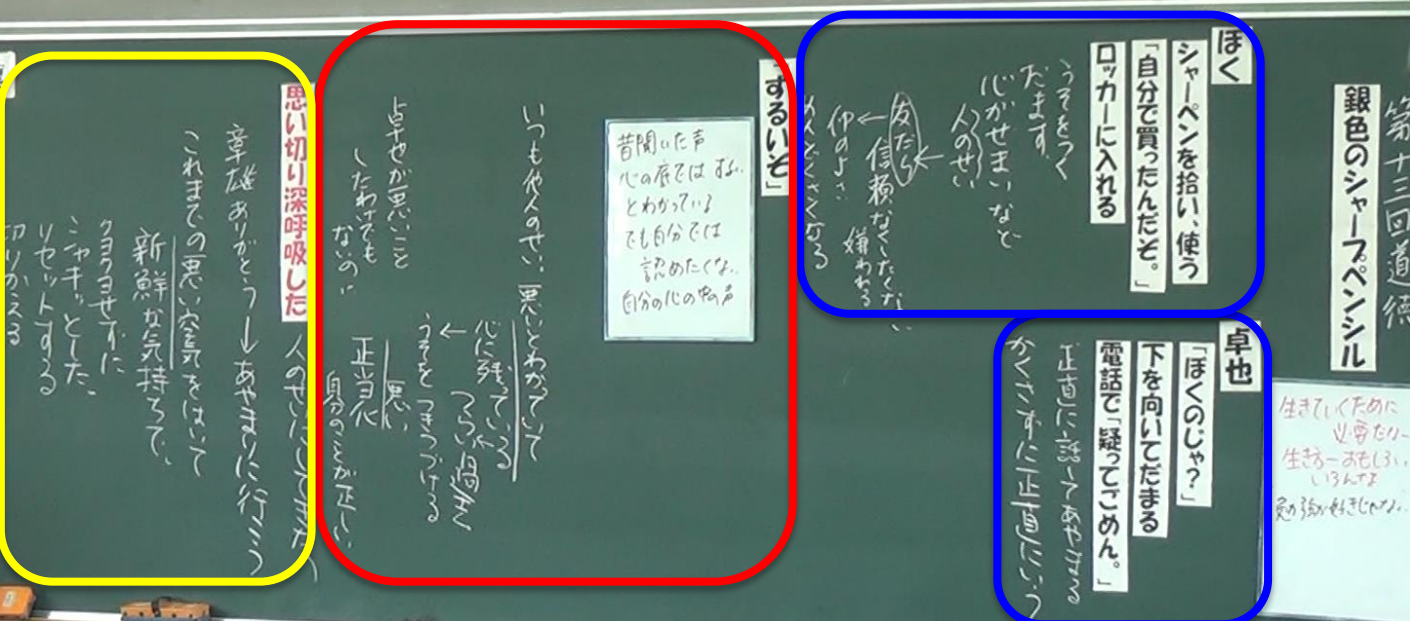 第十三回道徳
銀色のシャープペンシル
生きていくために
いろんな
ぼく
シャーペンを拾い、使う
「自分で買ったんだぞ。」
ロッカーに入れる
うそをつく
だます
心がせまいなど
人のせい
友だち
←信頼なくしたくない
仲のよさ
嫌われる
めんどくさくなる
卓也
「ぼくのじゃ?」
下を向いてだまる
電話で「疑ってごめん。」
正直に話してあやまる
かくさずに正直にいう
「ずるいぞ」
昔聞いた声
心の底では
とわかっている
でも自分では
認めたくな
自分の心の中の声
いつも他人のせい、悪いとわかっていて
心に残っている
つらい過去
←
うそをつきつづける
悪い
正当化
自分のことが正しい
卓也が悪いこと
したわけでも
ないのに
思い切り深呼吸した
人のせいにしてきた
章雄ありがとう→あやまりに行こう
これまでの悪い空気をはいて
新鮮な気持ちで、
クヨクヨせずに
シャキッとした、
リセットする
切りかえる